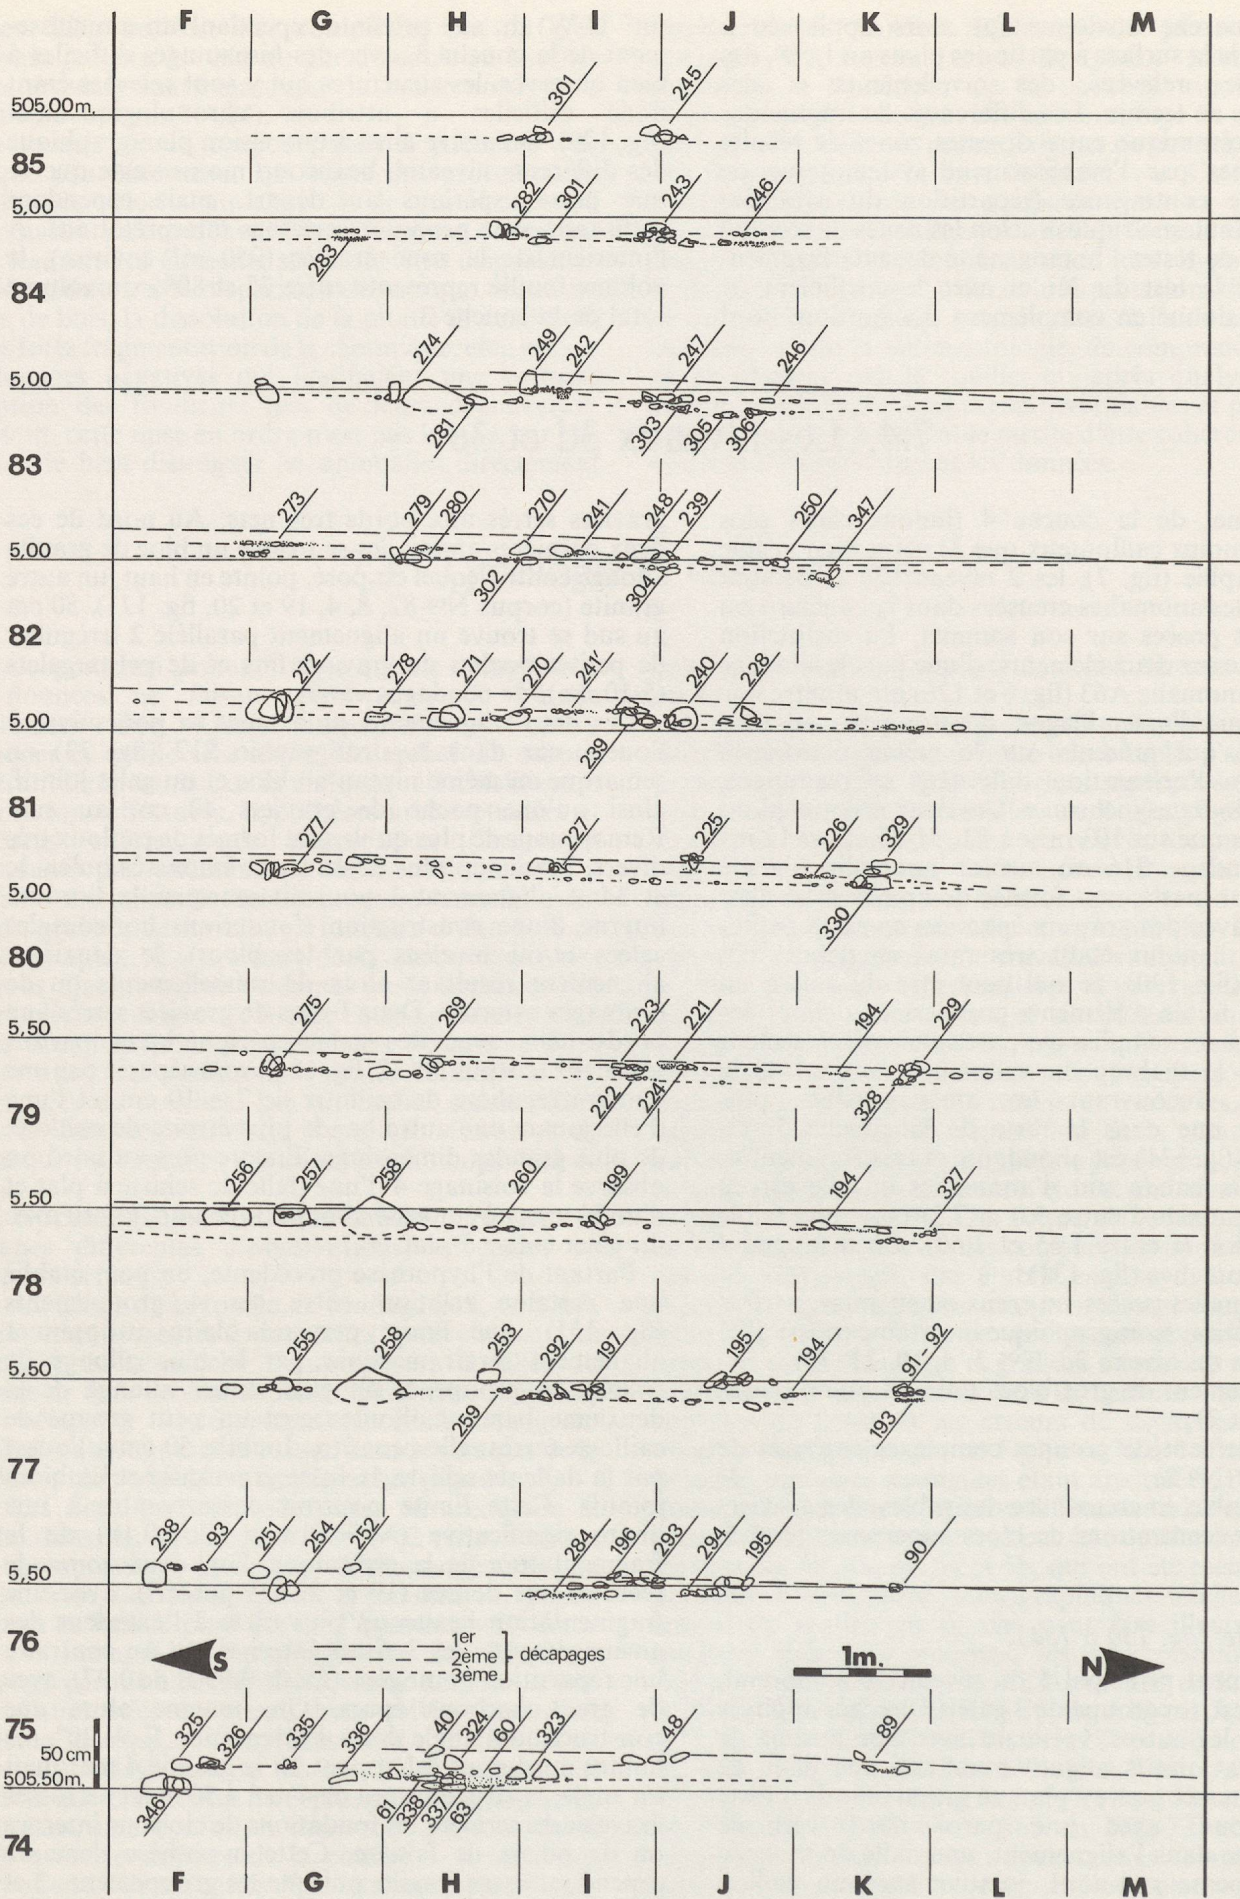 F G H I J K L M
301 245
505.00m.
85
282 301 243 246
5,00
283
84
274 249 242 247 246
5,00
281 303 305 306
83
273 279 280 270 241 248 239 250 347
5,00
302 304
82
272 278 271 270 241' 240 228
5,00
239
81
277 227 225 226 329
5,00
330
80
275 269 223 221 194 229
5,50
222 224 328
79
256 257 258 260 199 194 327
5,50
78
255 258 253 292 197 195 194 91-92
5,50
259 193
77
238 93 251 254 252 284 196 293 294 195 90
5,50
76
S 1er 1m. N
2ème décapages
3ème
75
325 326 335 336 40 324 60 323 48 89
50 cm
505.50m.
346 61 338 337 63
74
F G H I J K L M